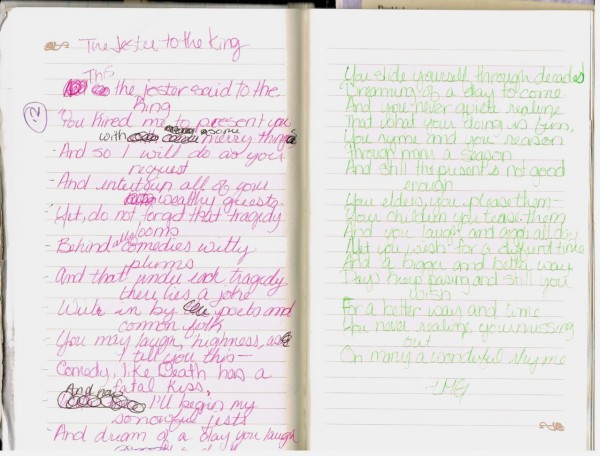 The Jester to the King
This
the jester said to the
King
2
"You hired me to present you
with some merry things
- And so I will do as your
request
- And entertain all of your
wealthy guests.
- Yet, do not forget that tragedy
looms
- Behind all comedies witty
plumes
- And that under each tragedy
there lies a joke
- Write in by poets and
common folk
- You may laugh, highness, as
I tell you this—
- Comedy, like Death has a
fatal kiss,
And now
- I'll begin my
sorrowful jests
- And dream of a day you laugh
You slide yourself through decades
Dreaming of a day to come
And you never quite realize
That what your doing is
You ryme and you reason
Through many a season
And still the present's not good
enough
You elders, you please them—
Your children you tease them
And you laugh and all day
you wish for a different time
And a bigger and better way
Days keep passing and still you
wish
For a better way and time
You never realize your missing
out
On many a wonderful rhyme